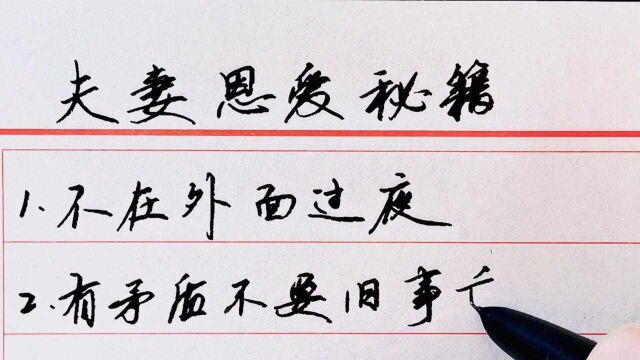 夫妻恩爱秘籍
1.不在外面过夜
2.有矛盾不要旧事